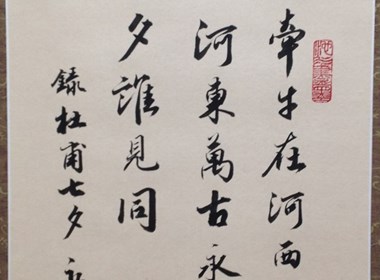 牽牛在河西
河東萬古永
夕誰見同
録杜甫七夕